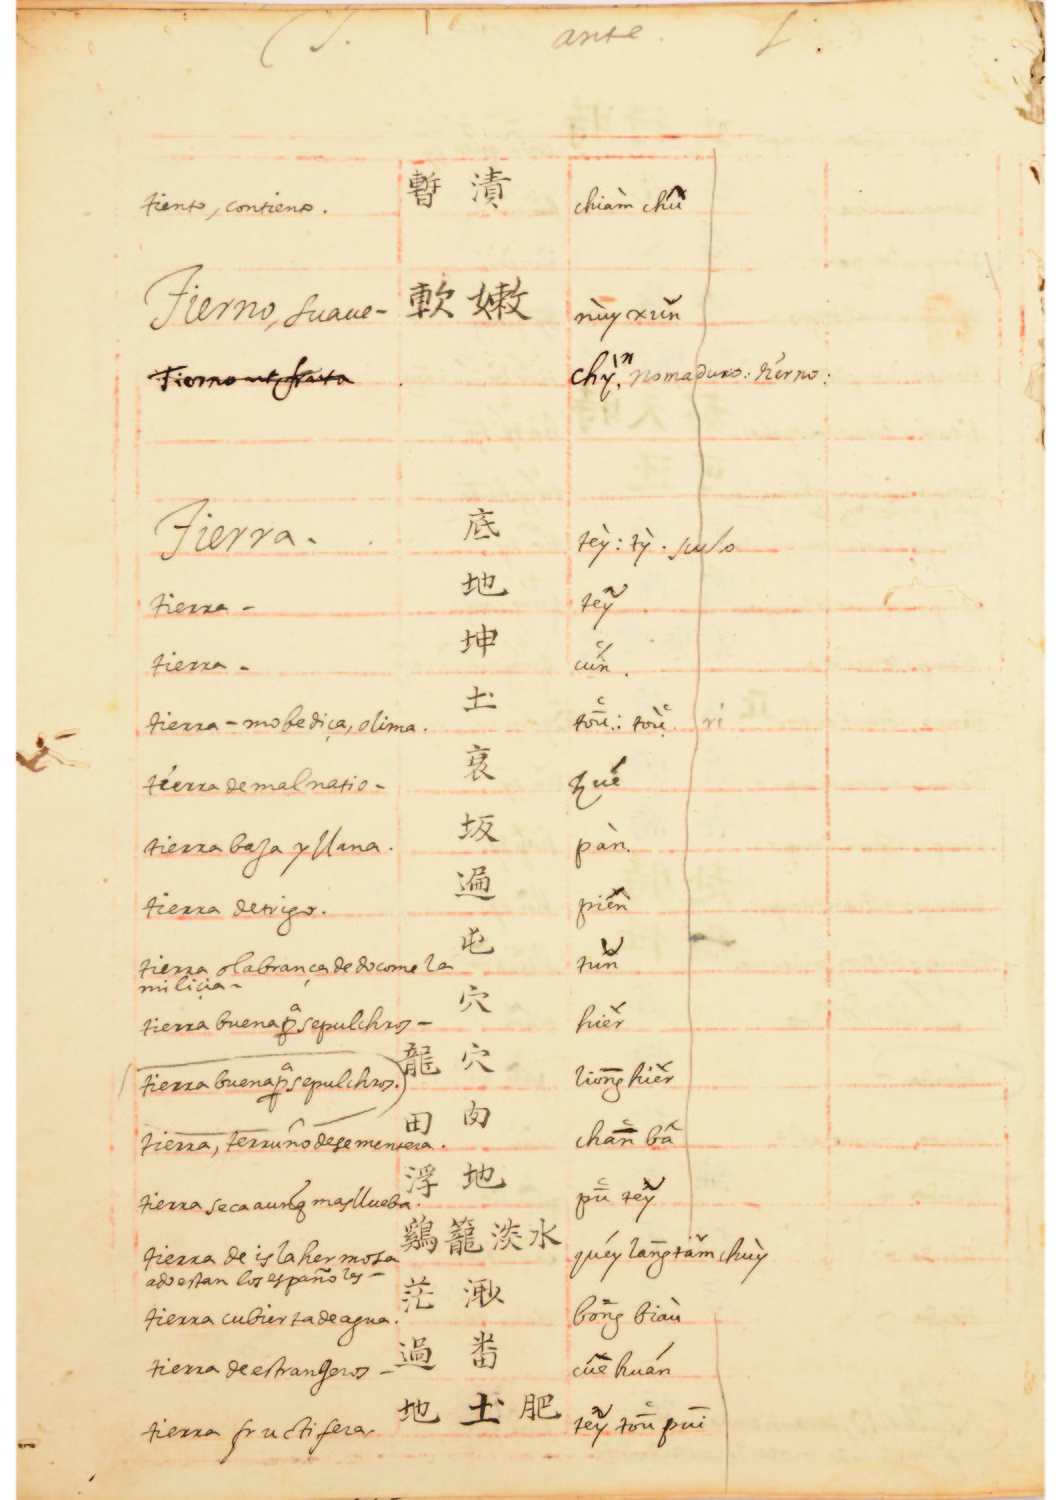 ante
tiento, contiento. 暫 漬 chiàm chũ
Tierno, suaue- 軟 嫩 nùy xũn
Tierno ut, fruta chỳn. nomaduro: tierno:
Tierra. 底 tèy: tỳ. suelo
tierra - 地 teỹ
tierra - 坤 cũn.
tierra - mobediça, o lima. 土 toū: toù
tierra de mal natio - 衰
tierra baja y llana. 坂 pàn.
tierra de trigo. 遍 piēn
tierra o labrança de do come la 屯 tǔn
miliçia -
tierra buena pa sepulchros - 穴 hiěr
tierra buena pa sepulchros. 龍 穴 liōng hiěr
tierra, terruño de sementera. 田 肉 chān bâ
tierra seca aunq mas llueba. 浮 地 pū teỹ
tierra de isla hermosa 鷄 籠 淡 水 quéy lāng tãm chùy
ado estan los españoles -
tierra cubierta de agua. 茫 渺 bōng biàu
tierra de estrangeros - 過 番 cūe huán
tierra fructifera 地 土 肥 teỹ toū puī